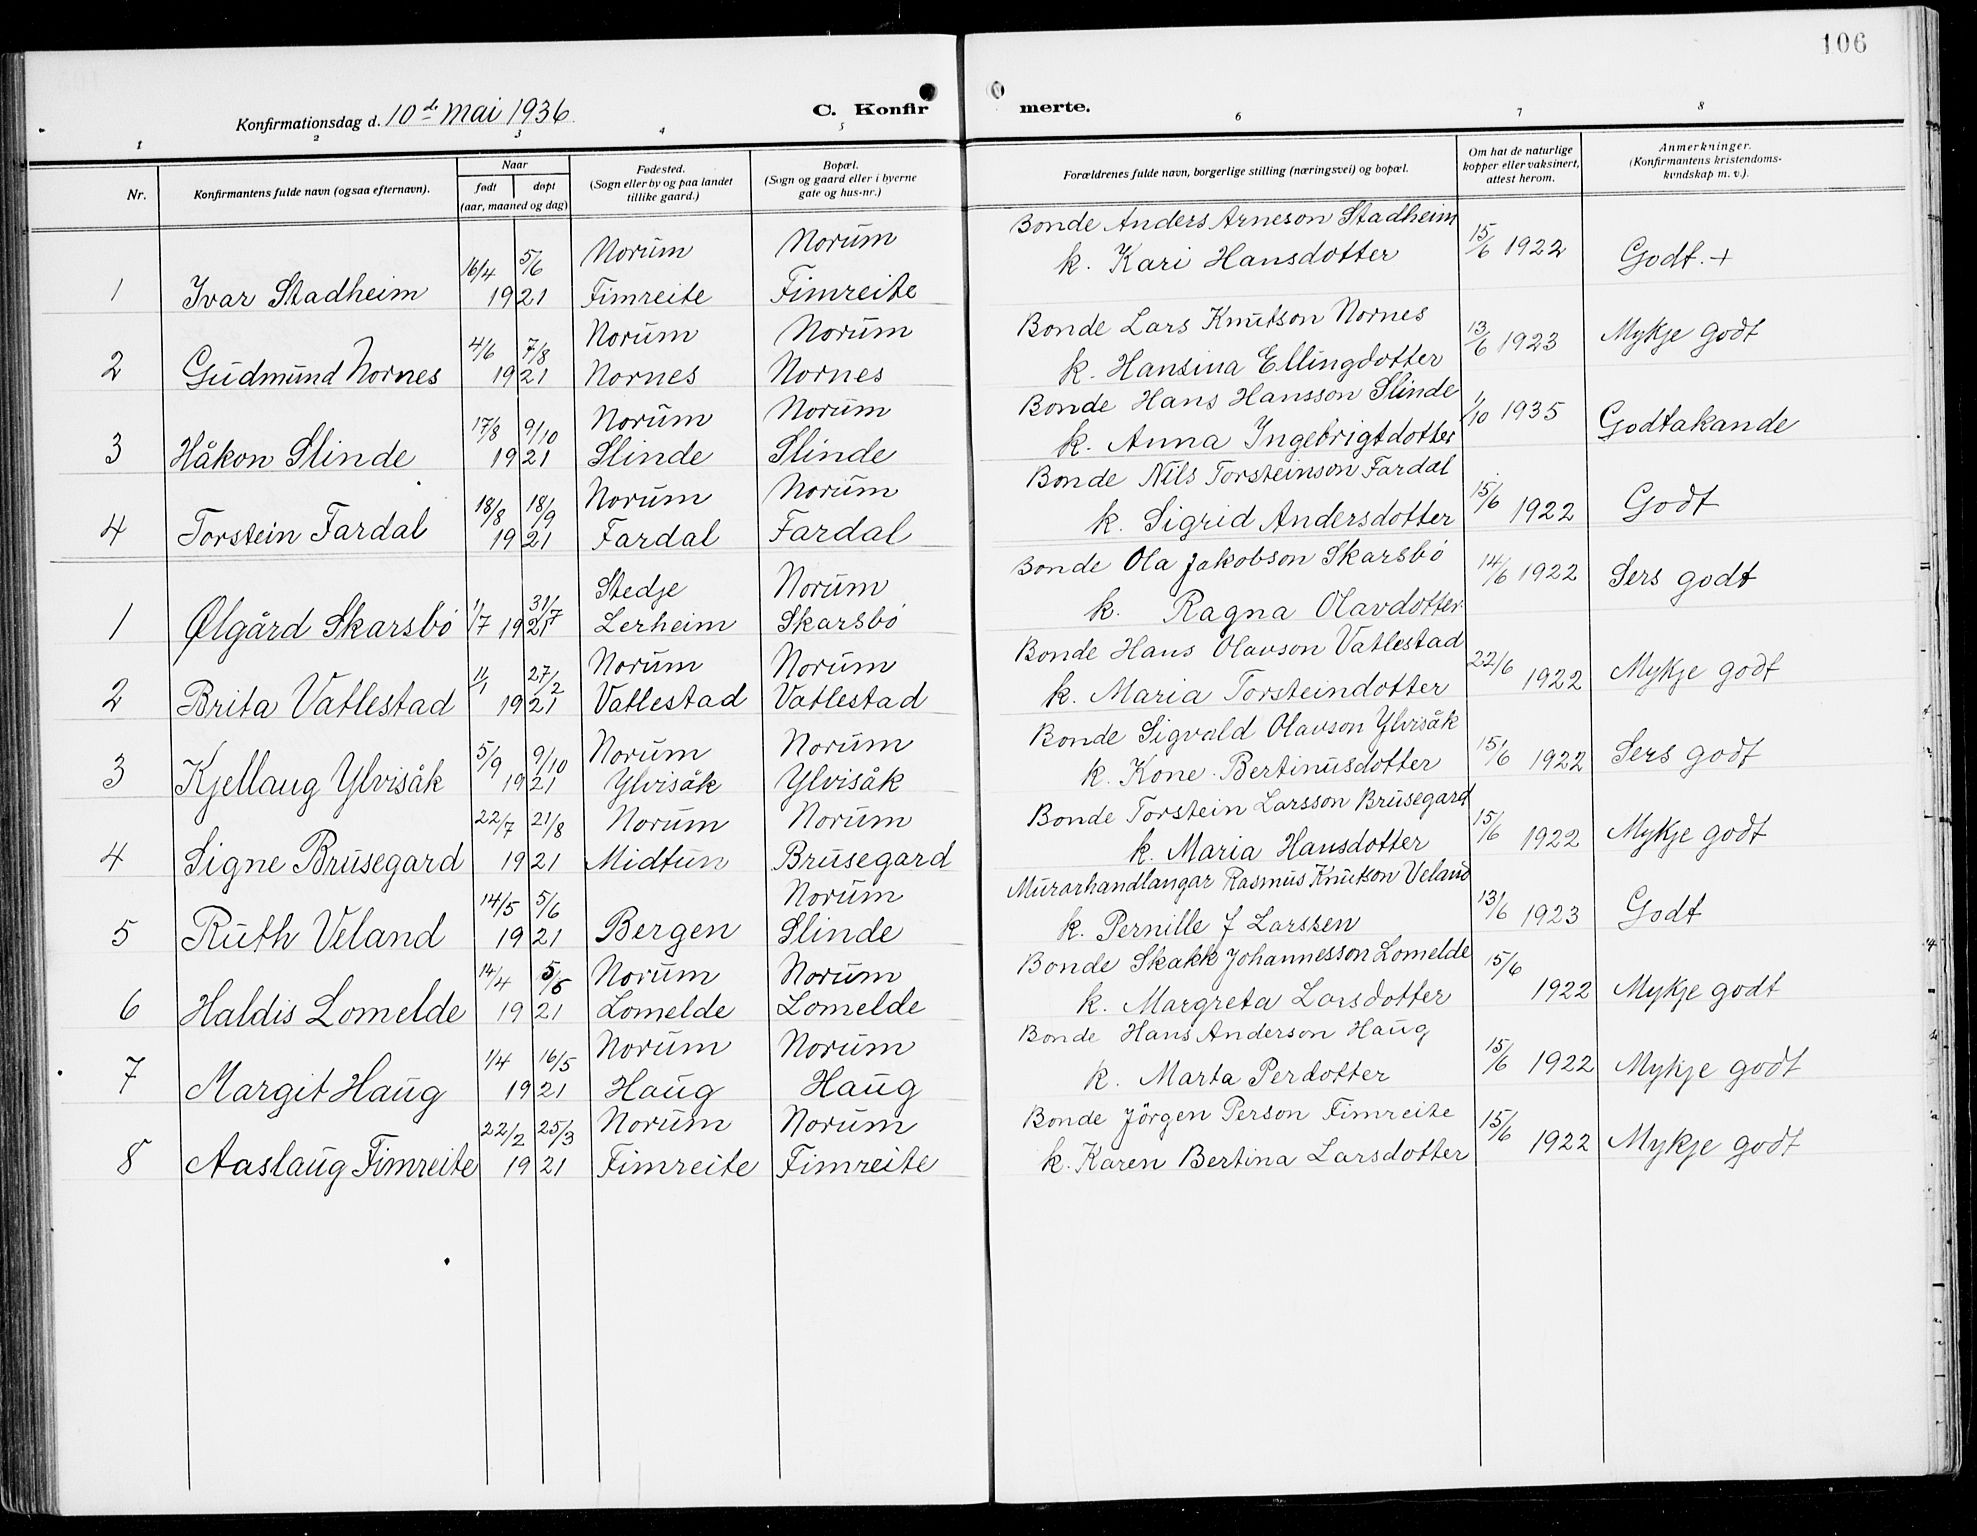 106
Konfirmationsdag d. 10de mai 1936. C. Konfirmerte.
1 2 3 4 5 6 7 8
Nr. Konfirmantens fulde navn (ogsaa efternavn). Naar født døpt (aar, maaned og dag) Fødested. (Sogn eller by og paa landet tillike gaard.) Bopæl. (Sogn og gaard eller i byerne gate og hus-nr.) Forældrenes fulde navn, borgerlige stilling (næringsvei) og bopæl. Om hat de naturlige kopper eller vaksinert, attest herom. Anmerkninger. (Konfirmantens kristendomskundskap m. v.).
16/4 5/6 Norum Norum Bonde Anders Arneson Stadheim 15/6 1922 Godt. +
1 Ivar Stadheim 1921 Fimreite Fimreite k. Kari Hansdotter
4/6 7/8 Norum Norum Bonde Lars Knutson Nornes 13/6 1923 Mykje godt
2 Gudmund Nornes 1921 Nornes Nornes k. Hansina Ellingdotter
17/8 9/10 Norum Norum Bonde Hans Hansson Slinde 1/10 1935 Godtakande
3 Håkon Slinde 1921 Slinde Slinde k. Anna Ingebrigtdotter
18/8 18/9 Norum Norum Bonde Nils Torsteinson Fardal 15/6 1922 Godt
4 Torstein Fardal 1921 Fardal Fardal k. Sigrid Andersdotter
1/7 31/7 Stedje Norum Bonde Ola Jakobson Skarsbö 14/6 1922 Sers godt
1 Ølgård Skarsbö 1921 Lerheim Skarsbö k. Ragna Olavdotter.
11/1 27/2 Norum Norum Bonde Hans Olavson Vatlestad 22/6 1922 Mykje godt
2 Brita Vatlestad 1921 Vatlestad Vatlestad k. Maria Torsteindotter
5/9 9/10 Norum Norum Bonde Sigvald Olavson Ylvisåk 15/6 1922 Sers godt
3 Kjellaug Ylvisåk 1921 Ylvisåk Ylvisåk k. Kone Bertinusdotter
22/7 21/8 Norum Norum Bonde Torstein Larsson Brusegard 15/6 1922 Mykje godt
4 Signe Brusegard 1921 Midtun Brusegard k. Maria Hansdotter
14/5 5/6 Norum Murarhandlangar Rasmus Knutson Veland 13/6 1923 Godt
5 Ruth Veland 1921 Bergen Slinde k. Pernille J Larssen
14/4 5/5 Norum Norum Bonde Skakk Johannesson Lomelde 15/6 1922 Mykje godt
6 Haldis Lomelde 1921 Lomelde Lomelde k. Margreta Larsdotter
1/4 16/5 Norum Norum Bonde Hans Anderson Haug 15/6 1922 Mykje godt
7 Margit Haug 1921 Haug Haug k. Marta Perdotter
22/2 25/3 Norum Norum Bonde Jörgen Person Fimreite 15/6 1922 Mykje godt
8 Aaslaug Fimreite 1921 Fimreite Fimreite k. Karen Bertina Larsdotter